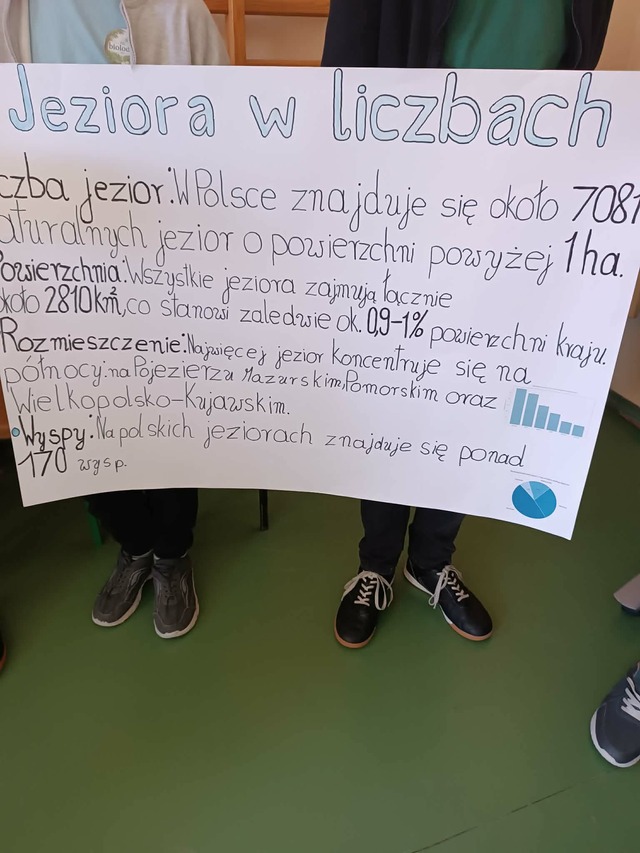 biolog
Jeziora w liczbach
czba jezior: W Polsce znajduje się około 7081
aturalnych jezior o powierzchni powyżej 1ha.
Powierzchnia: Wszystkie jeziora zajmują łącznie
około 2810 km², co stanowi zaledwie ok. 0,9-1% powierzchni kraju.
Rozmieszczenie: Najwięcej jezior koncentruje się na
północy: na Pojezierzu Mazurskim, Pomorskim oraz
Wielkopolsko-Kujawskim.
Wyspy: Na polskich jeziorach znajduje się ponad
170 wysp.